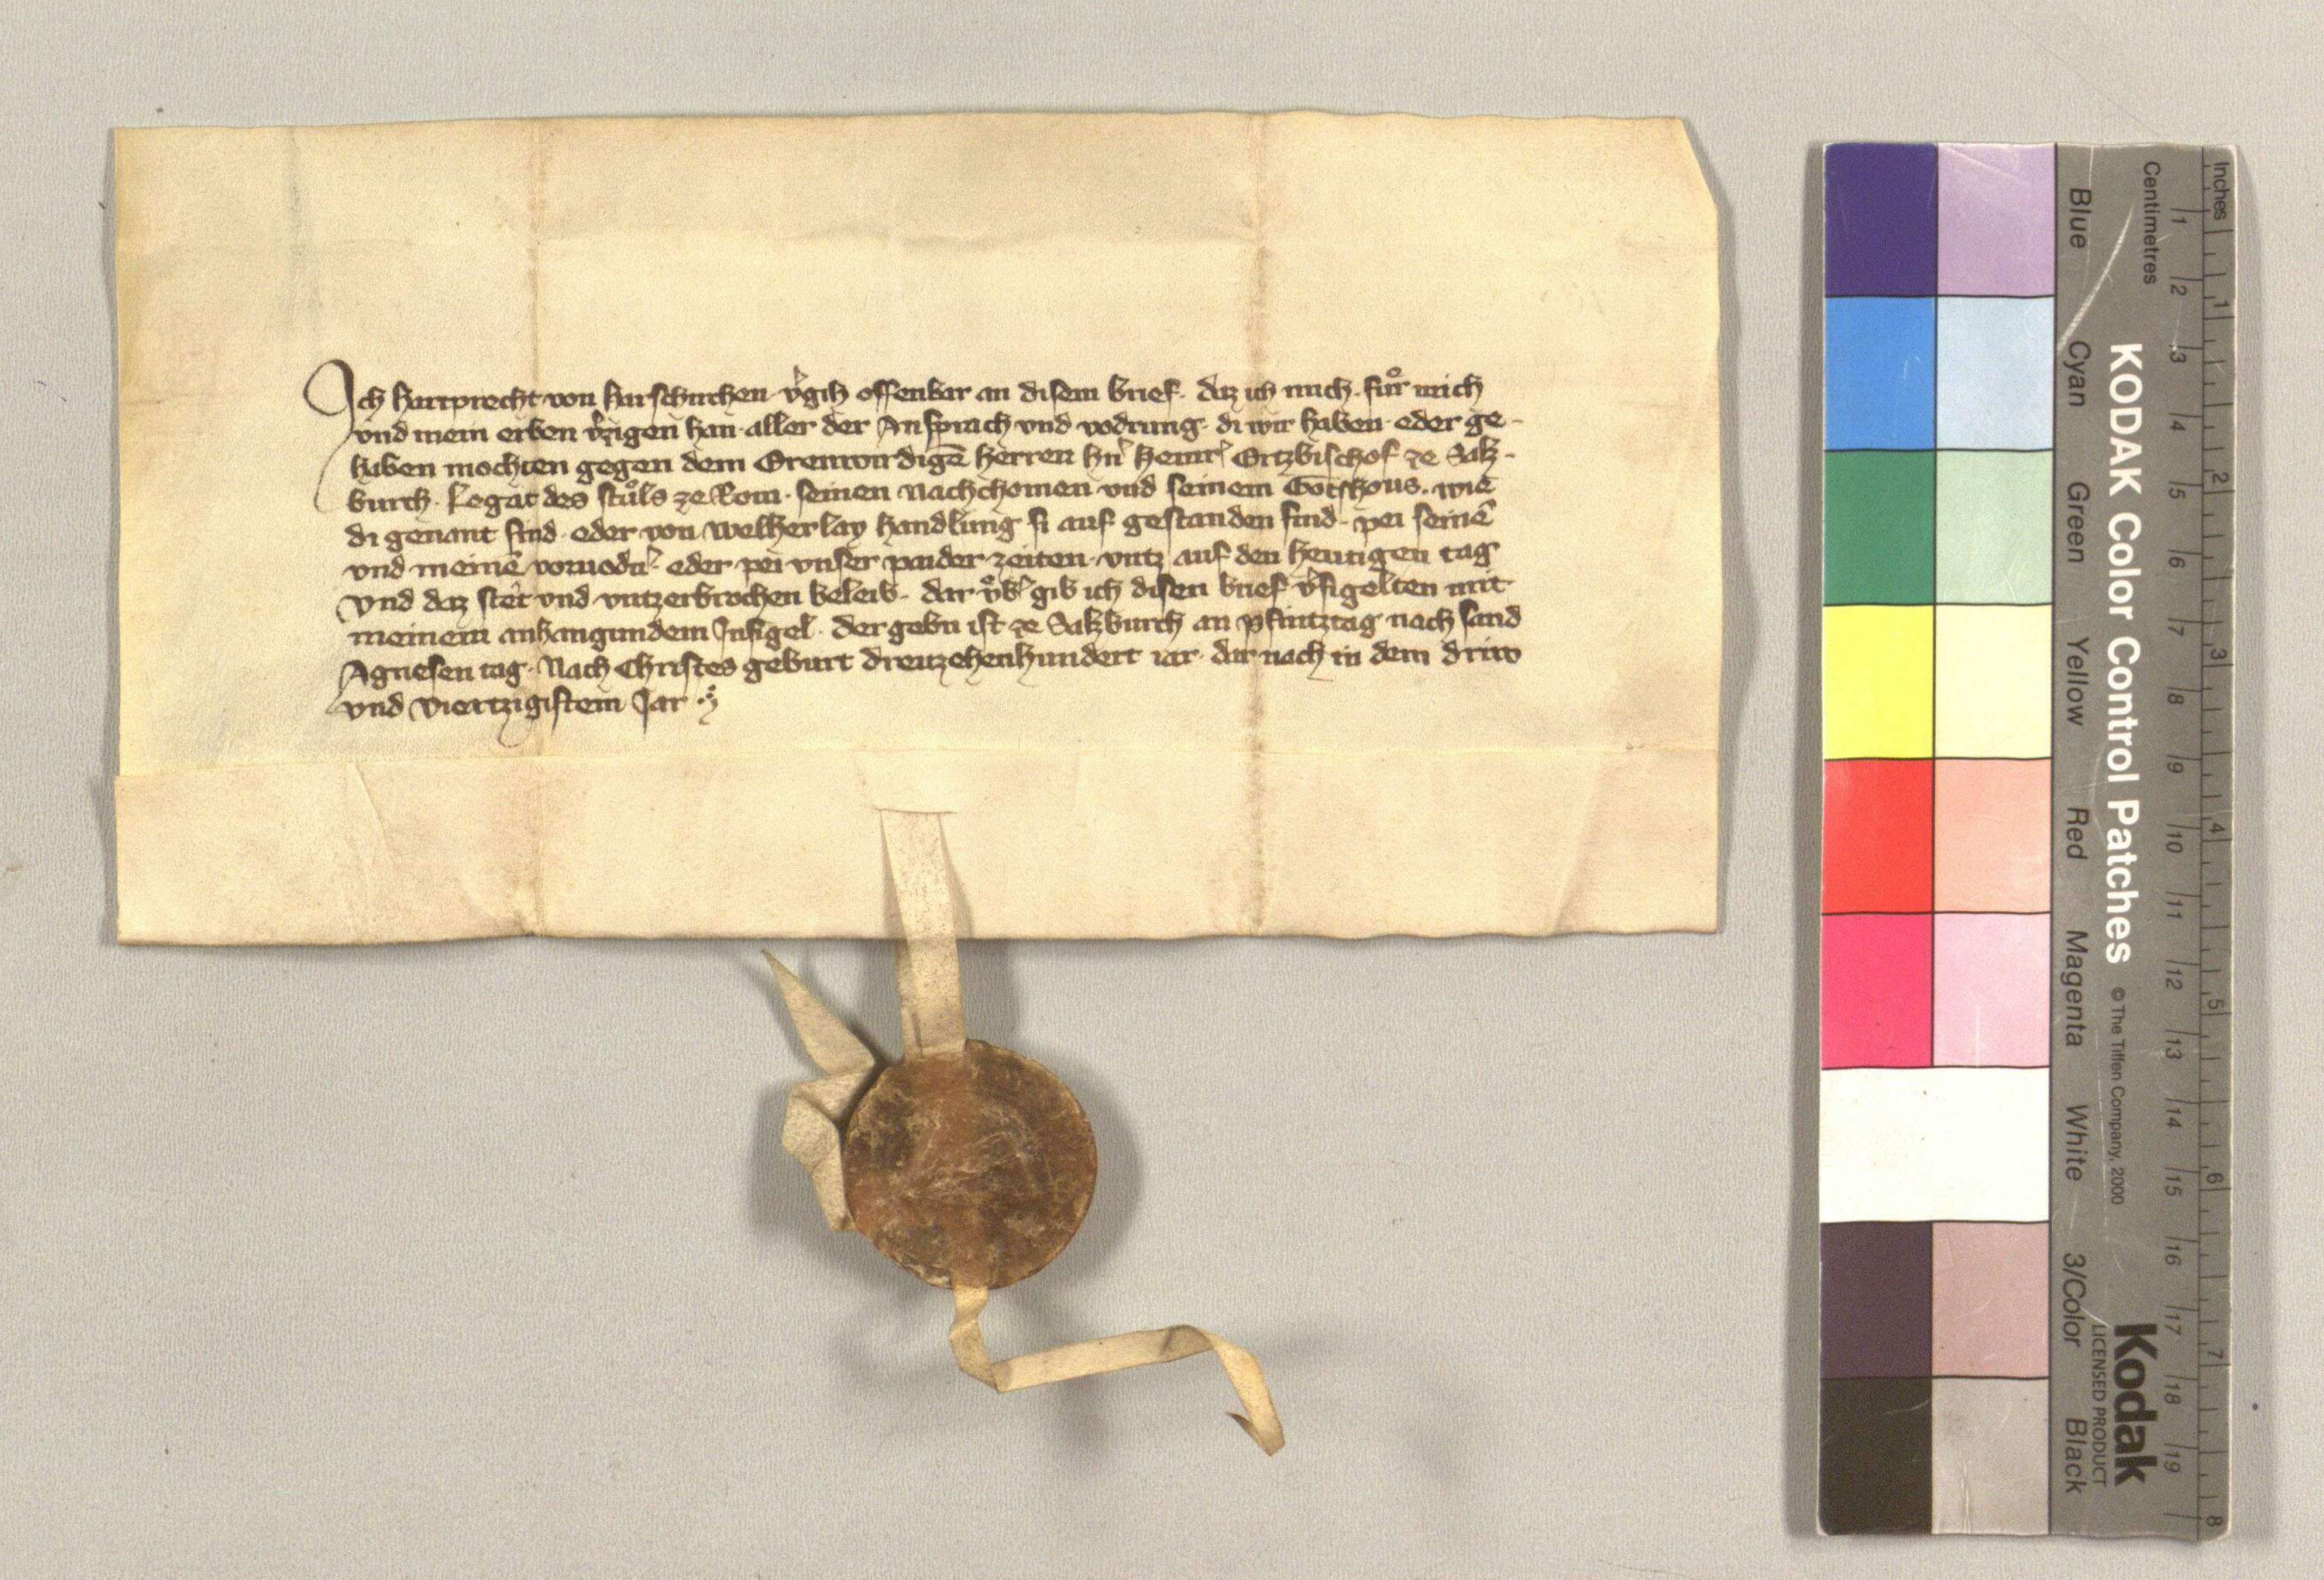 Ich Hartprecht von Harschirchen v̾gih offenbar an disem brief · daz ich mich · fuͦr mich
und mein erben v̾zigen han · aller der Ansprach vnd vodrung · di wir haben · oder ge-
haben mochten gegen dem Erenwirdigē herren hn̾ Heinr̾ Ertzbischof ze Salz-
burch · Legat des stuͦls ze Rom · seinen nachchomen vnd seinem Gotshous · wie
di genant sind · oder von welherlay handlung si auf gestanden sind · pei seinē
und meinē vorvodn̾ · oder pei vnser paider zeiten · vntz auf den heutigen tag
Vnd daz stêt vnd vntzerbrochen beleib · dar vͦb̾ gib ich disen brief v̾sigelten mit
meinem anhangundem Insigel · der gebn ist ze Salzburch an Pfintztag nach sand
Agnesen tag · Nach Christes geburt dreuzehenhundert iar · dar nach in dem driw
vnd viertzigistem Jar
Inches
Centimetres
1 2 3 4 5 6 7 8 9 10 11 12 13 14 15 16 17 18 19
1 2 3 4 5 6 7 8
KODAK Color Control Patches
© The Tiffen Company, 2000
Kodak
LICENSED PRODUCT
Blue Cyan Green Yellow Red Magenta White 3/Color Black